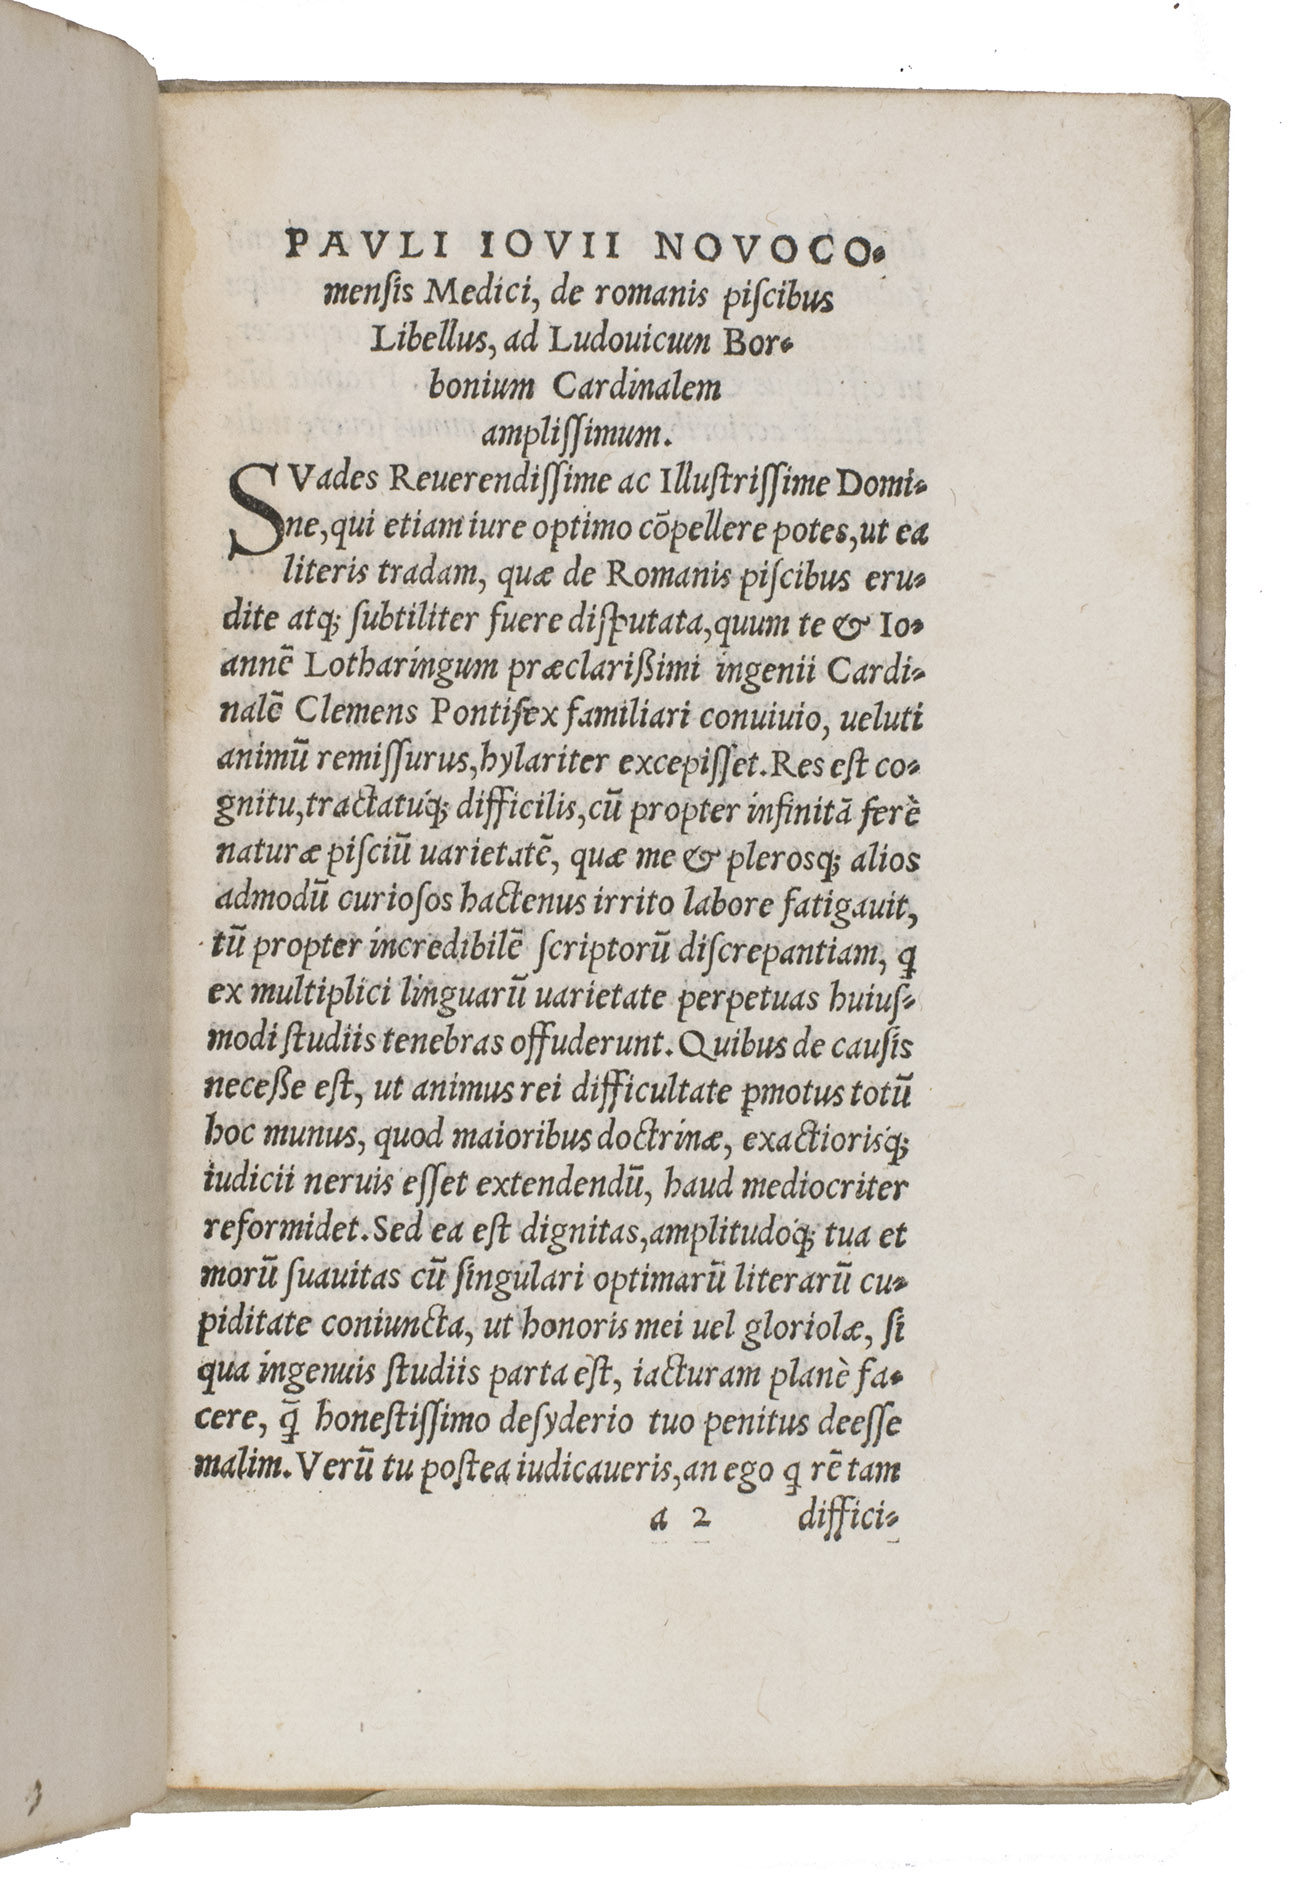 PAVLI IOVII NOVOCO-
menſis Medici, de romanis piſcibus
Libellus, ad Ludouicum Bor-
bonium Cardinalem
ampliſſimum.
SVades Reuerendiſſime ac Illuſtriſſime Domi-
ne, qui etiam iure optimo cōpellere potes, ut ea
literis tradam, quæ de Romanis piſcibus eru-
dite atq; ſubtiliter fuere diſputata, quum te & Io-
annē Lotharingum præclarißimi ingenii Cardi-
nalē Clemens Pontifex familiari conuiuio, ueluti
animū remiſſurus, hylariter excepiſſet. Res eſt co-
gnitu, tractatuq́; difficilis, cū propter infinitā ferè
naturæ piſciū uarietatē, quæ me & pleroſq; alios
admodū curioſos hactenus irrito labore fatigauit,
tū propter incredibilē ſcriptorū diſcrepantiam, ꝗ
ex multiplici linguarū uarietate perpetuas huiuſ-
modi ſtudiis tenebras offuderunt. Quibus de cauſis
neceße eſt, ut animus rei difficultate ꝑmotus totū
hoc munus, quod maioribus doctrinæ, exactiorisq́;
iudicii neruis eſſet extendendū, haud mediocriter
reformidet. Sed ea eſt dignitas, amplitudoq́; tua et
morū ſuauitas cū ſingulari optimarū literarū cu-
piditate coniuncta, ut honoris mei uel gloriolæ, ſi
qua ingenuis ſtudiis parta eſt, iacturam planè fa-
cere, ꝗ̄ honeſtiſſimo deſyderio tuo penitus deeſſe
malim. Verū tu poſtea iudicaueris, an ego ꝗ rē tam
a 2 diffici-